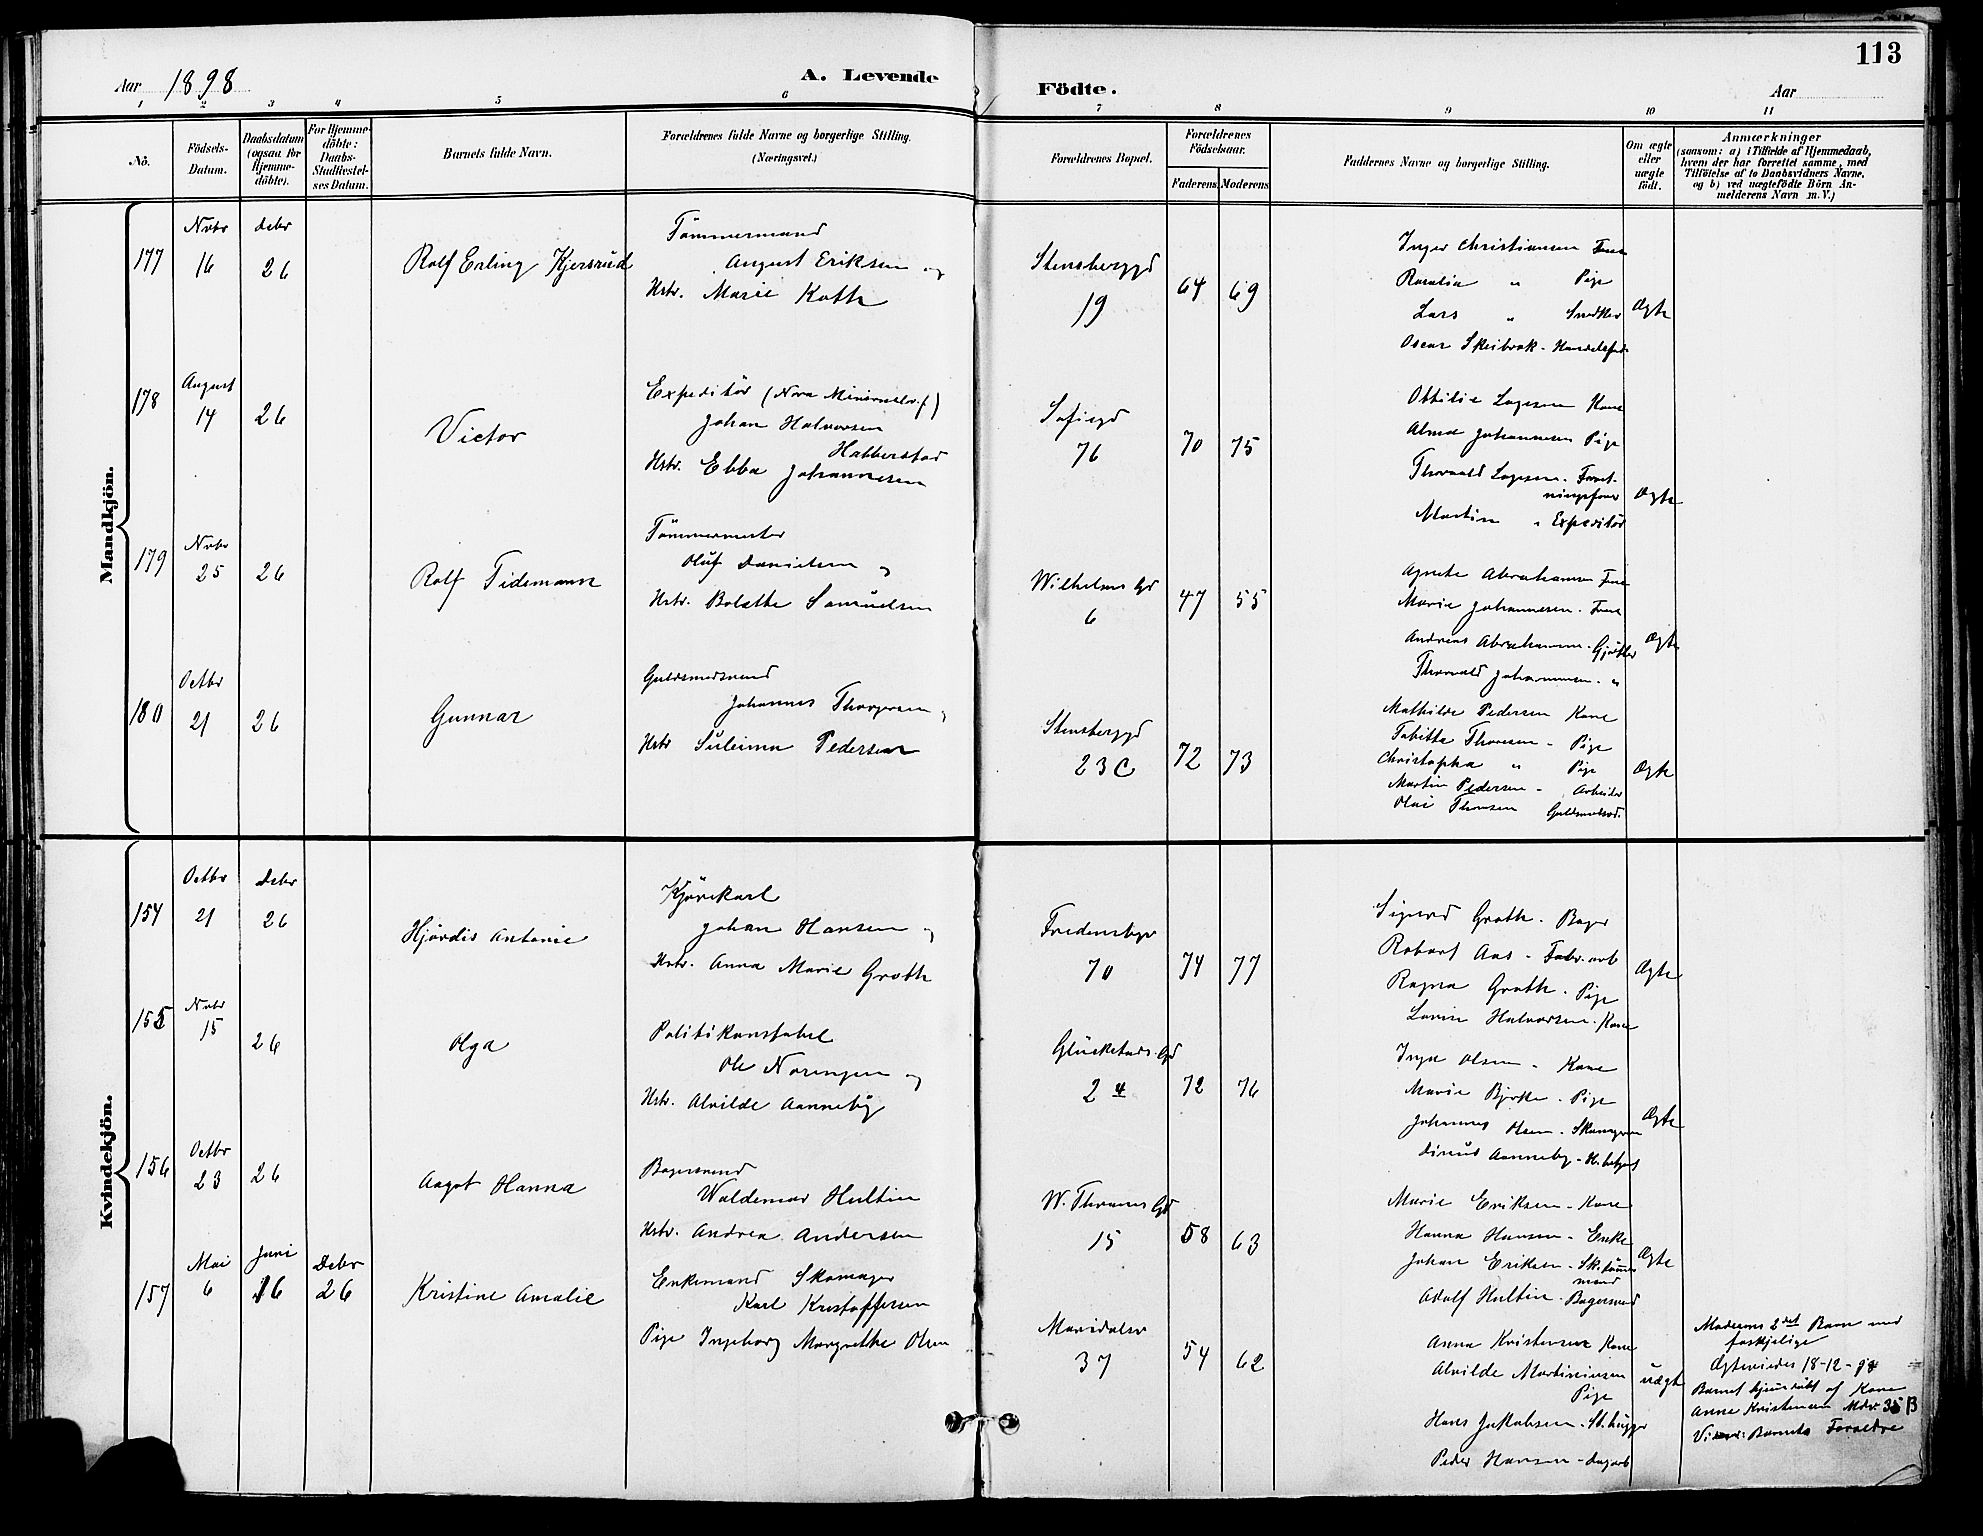 113
Aar 1898
A. Levende
Födte.
Aar
1 2 3 4 5 6 7 8 9 10 11
Nô.
Födsels-Datum.
Daabsdatum (ogsaa for Hjemme-döbte).
For Hjemme-döbte: Daabs-Stadfæstel-ses Datum.
Barnets fulde Navn.
Forældrenes fulde Navne og borgerlige Stilling.
(Næringsvei.)
Forældrenes Bopæl.
Forældrenes Födselsaar.
Faderens. Moderens.
Faddernes Navne og borgerlige Stilling.
Om ægte eller uægte födt.
Anmærkninger
(saasom: a) i Tilfælde af Hjemmedaab,
hvem der har forrettet samme, med
Tilföielse af to Daabsvidners Navne.
og b) ved uægtefödte Börn An-
melderens Navn m. V.)
Mandkjön.
177 Novbr 16 Debr 26
Rolf Erling Kjersrud
Tömmermand
August Eriksen og
Hstr. Marie Koth
Stensberggd
19
64 69
Inger Christiansen Frue
Rosalie " Pige
Lars " Snedker
Oscar Skeibrok - Handelsfuld.
Ægte
178 August 14 26
Victor
Expeditör (Nora Mineralv.f)
Johan Halvorsen
Habberstad
Hstr. Ebba Johannesen
Sofiegd
76
70 75
Ottilie Lagesen Kone
Alma Johannesen Pige
Thorvald Lagesen. Forret-
ningsförer
Martin " Expeditör
Ægte
179 Novbr 25 26
Rolf Tidemann
Tömmermester
Oluf Danielsen og
Hstr. Bolette Samuelsen
Wilhelms Gd
6
47 55
Agnete Abrahamsen Frue
Marie Johannesen. Frue
Andreas Abrahamsen. Gjörtler
Thorvald Johannesen. "
Ægte
180 Octbr 21 26
Gunnar
Guldsmedsvend
Johannes Thoresen og
Hstr Suleima Pedersen
Stensberggd
23 C
72 73
Mathilde Pedersen Kone
Tabitta Thoresen - Pige
Christopha " Pige
Martin Pedersen - Arbeider
Olai Thoresen Guldsmedsvd.
Ægte
Kvindekjön.
154 Octbr 21 Debr 26
Hjördis Antonie
Kjörekarl
Johan Hansen og
Hstr. Anna Marie Groth
Fredensbgv
70
74 77
Sigurd Groth. Bager
Robert Aas - Fabr. arb
Ragna Groth. Pige
Lovise Halvorsen. Kone
Ægte
155 Novbr 15 26
Olga
Politikonstabel
Ole Norengen og
Hstr. Alvilde Aanneby
Glückstads Gd
2 4
72 76
Inga Olsen - Kone
Marie Bjerke. Pige
Johannes Olsen - Skomager
Sirius Aanneby - H. betjent
Ægte
156 Octbr 23 26
Aagot Hanna
Bagersvend
Waldemar Hultin
Hstr. Andrea Andersen
W. Thranes Gd
15
58 63
Marie Eriksen - Kone
Hanna Hansen - Enke
Johan Eriksen - Sk. tömmer
mand
Adolf Hultin. Bagersvend
Ægte
157 Mai 6 Juni 16 Debr 26
Kristine Amalie
Enkemand Skomager
Karl Kristoffersen
Pige Ingeborg Margrethe Olsen
Maridalsv
37
54 62
Anna Kristensen Kone
Alvilde Martiniusen
Pige
Hans Jakobsen - St. hugger
Peder Hansen - dagarb
uægte
Moderens 2det Barn med
forskjelige
Ægteviedes 18-12-98
Barnet hjemdöbt af Kone
Anne Kristensen Mdv 35 B
Vidner: Barnets Forældre